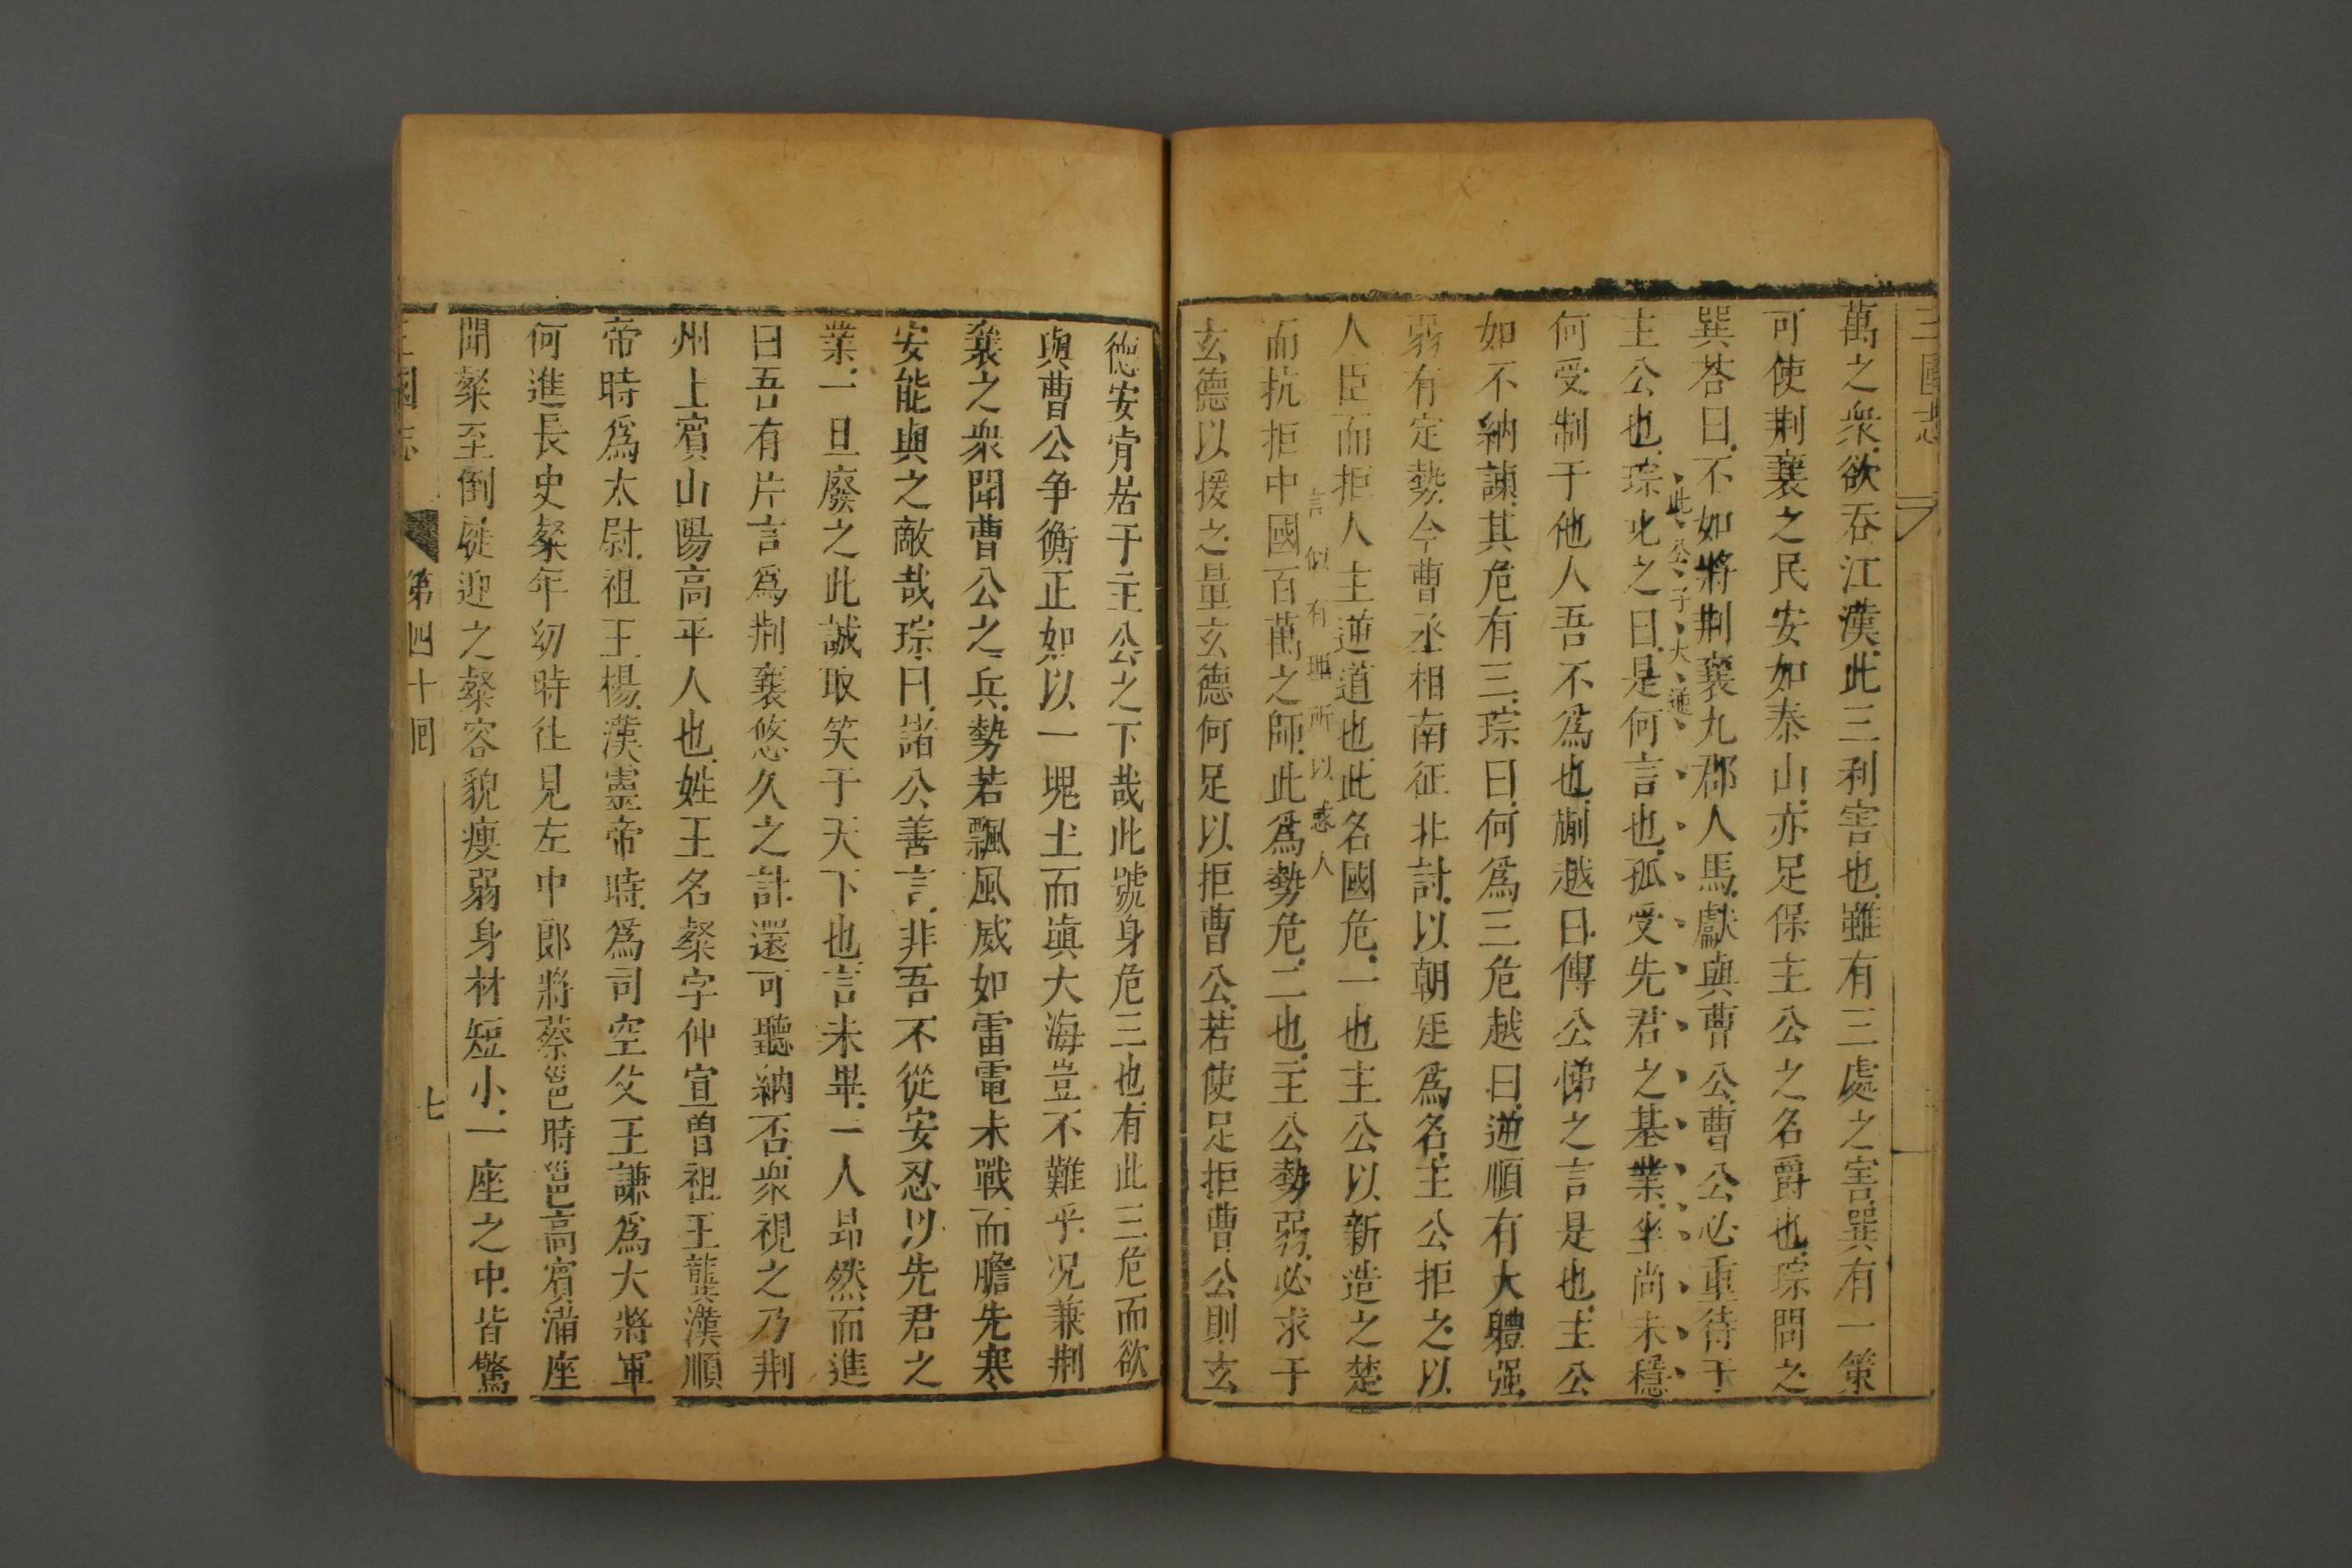 三國志
萬之衆欲吞江漢此三利害也雖有三處之害巽有一策
可使荆襄之民安如泰山亦足保主公之名爵也琮問之
巽荅曰不如將荆襄九郡人馬獻與曹公曹公必重待于
此公子大通
主公也琮叱之曰是何言也孤受先君之基業坐尚未穩
何受制于他人吾不爲也蒯越曰傅公悌之言是也主公
如不納諫其危有三琮曰何爲三危越曰逆順有大體强
弱有定勢今曹丞相南征北討以朝廷爲名主公拒之以
人臣而拒人主逆道也此名國危一也主公以新造之楚
言似有理所以惑人
而抗拒中國百萬之師此爲勢危二也主公勢弱必求于
玄德以援之量玄德何足以拒曹公若使足拒曹公則玄
德安肯居于主公之下哉此號身危三也有此三危而欲
與曹公争衡正如以一塊土而塡大海豈不難乎况兼荆
襄之衆聞曹公之兵勢若飄風威如雷電未戰而膽先寒
安能與之敵哉琮曰諸公善言非吾不從安忍以先君之
業一旦廢之此誠取笑于天下也言未畢一人昂然而進
曰吾有片言爲荆襄悠久之計還可聽納否衆視之乃荆
州上賓山陽高平人也姓王名粲字仲宣曽祖王龔漢順
帝時爲太尉祖王楊漢靈帝時爲司空父王謙爲大將軍
何進長史粲年幼時往見左中郎將蔡邕時邕高賓滿座
聞粲至倒屣迎之粲容貌瘦弱身材短小一座之中皆驚
三國志
第四十囘
七